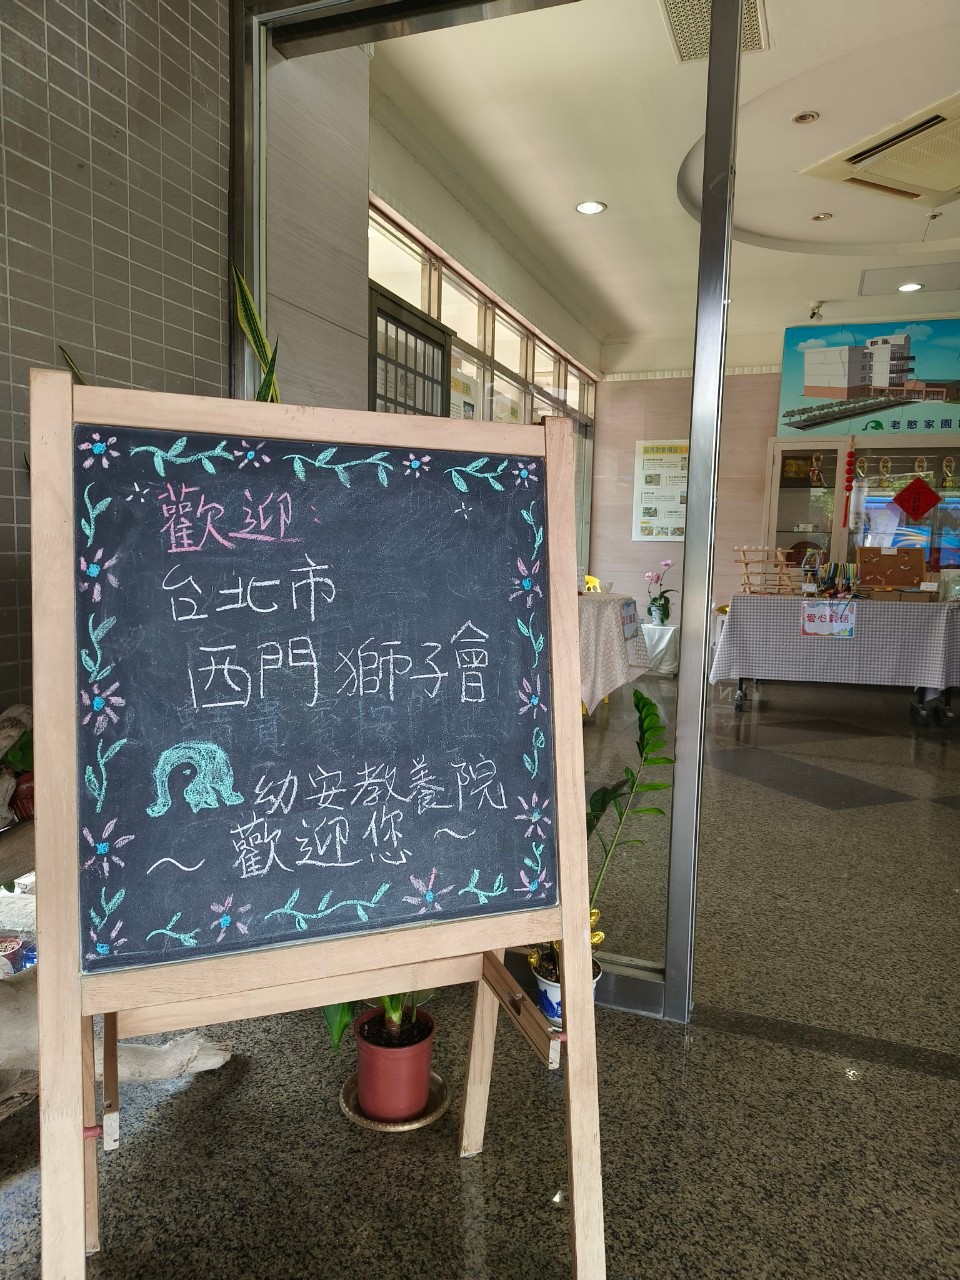 歡迎:
台北市
西門獅子會
幼安教養院
~歡迎您~
老憨家園
愛心義賣